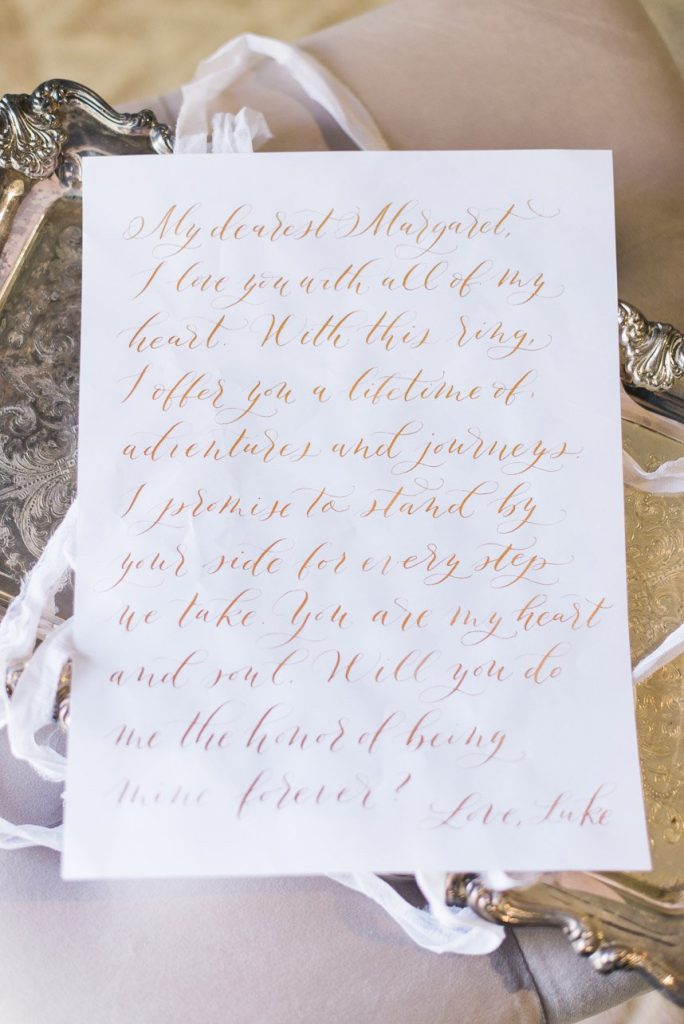 My dearest Margaret,
I love you with all of my
heart. With this ring,
I offer you a lifetime of
adventures and journeys.
I promise to stand by
your side for every step
we take. You are my heart
and soul. Will you do
me the honor of being
mine forever?
Love, Luke